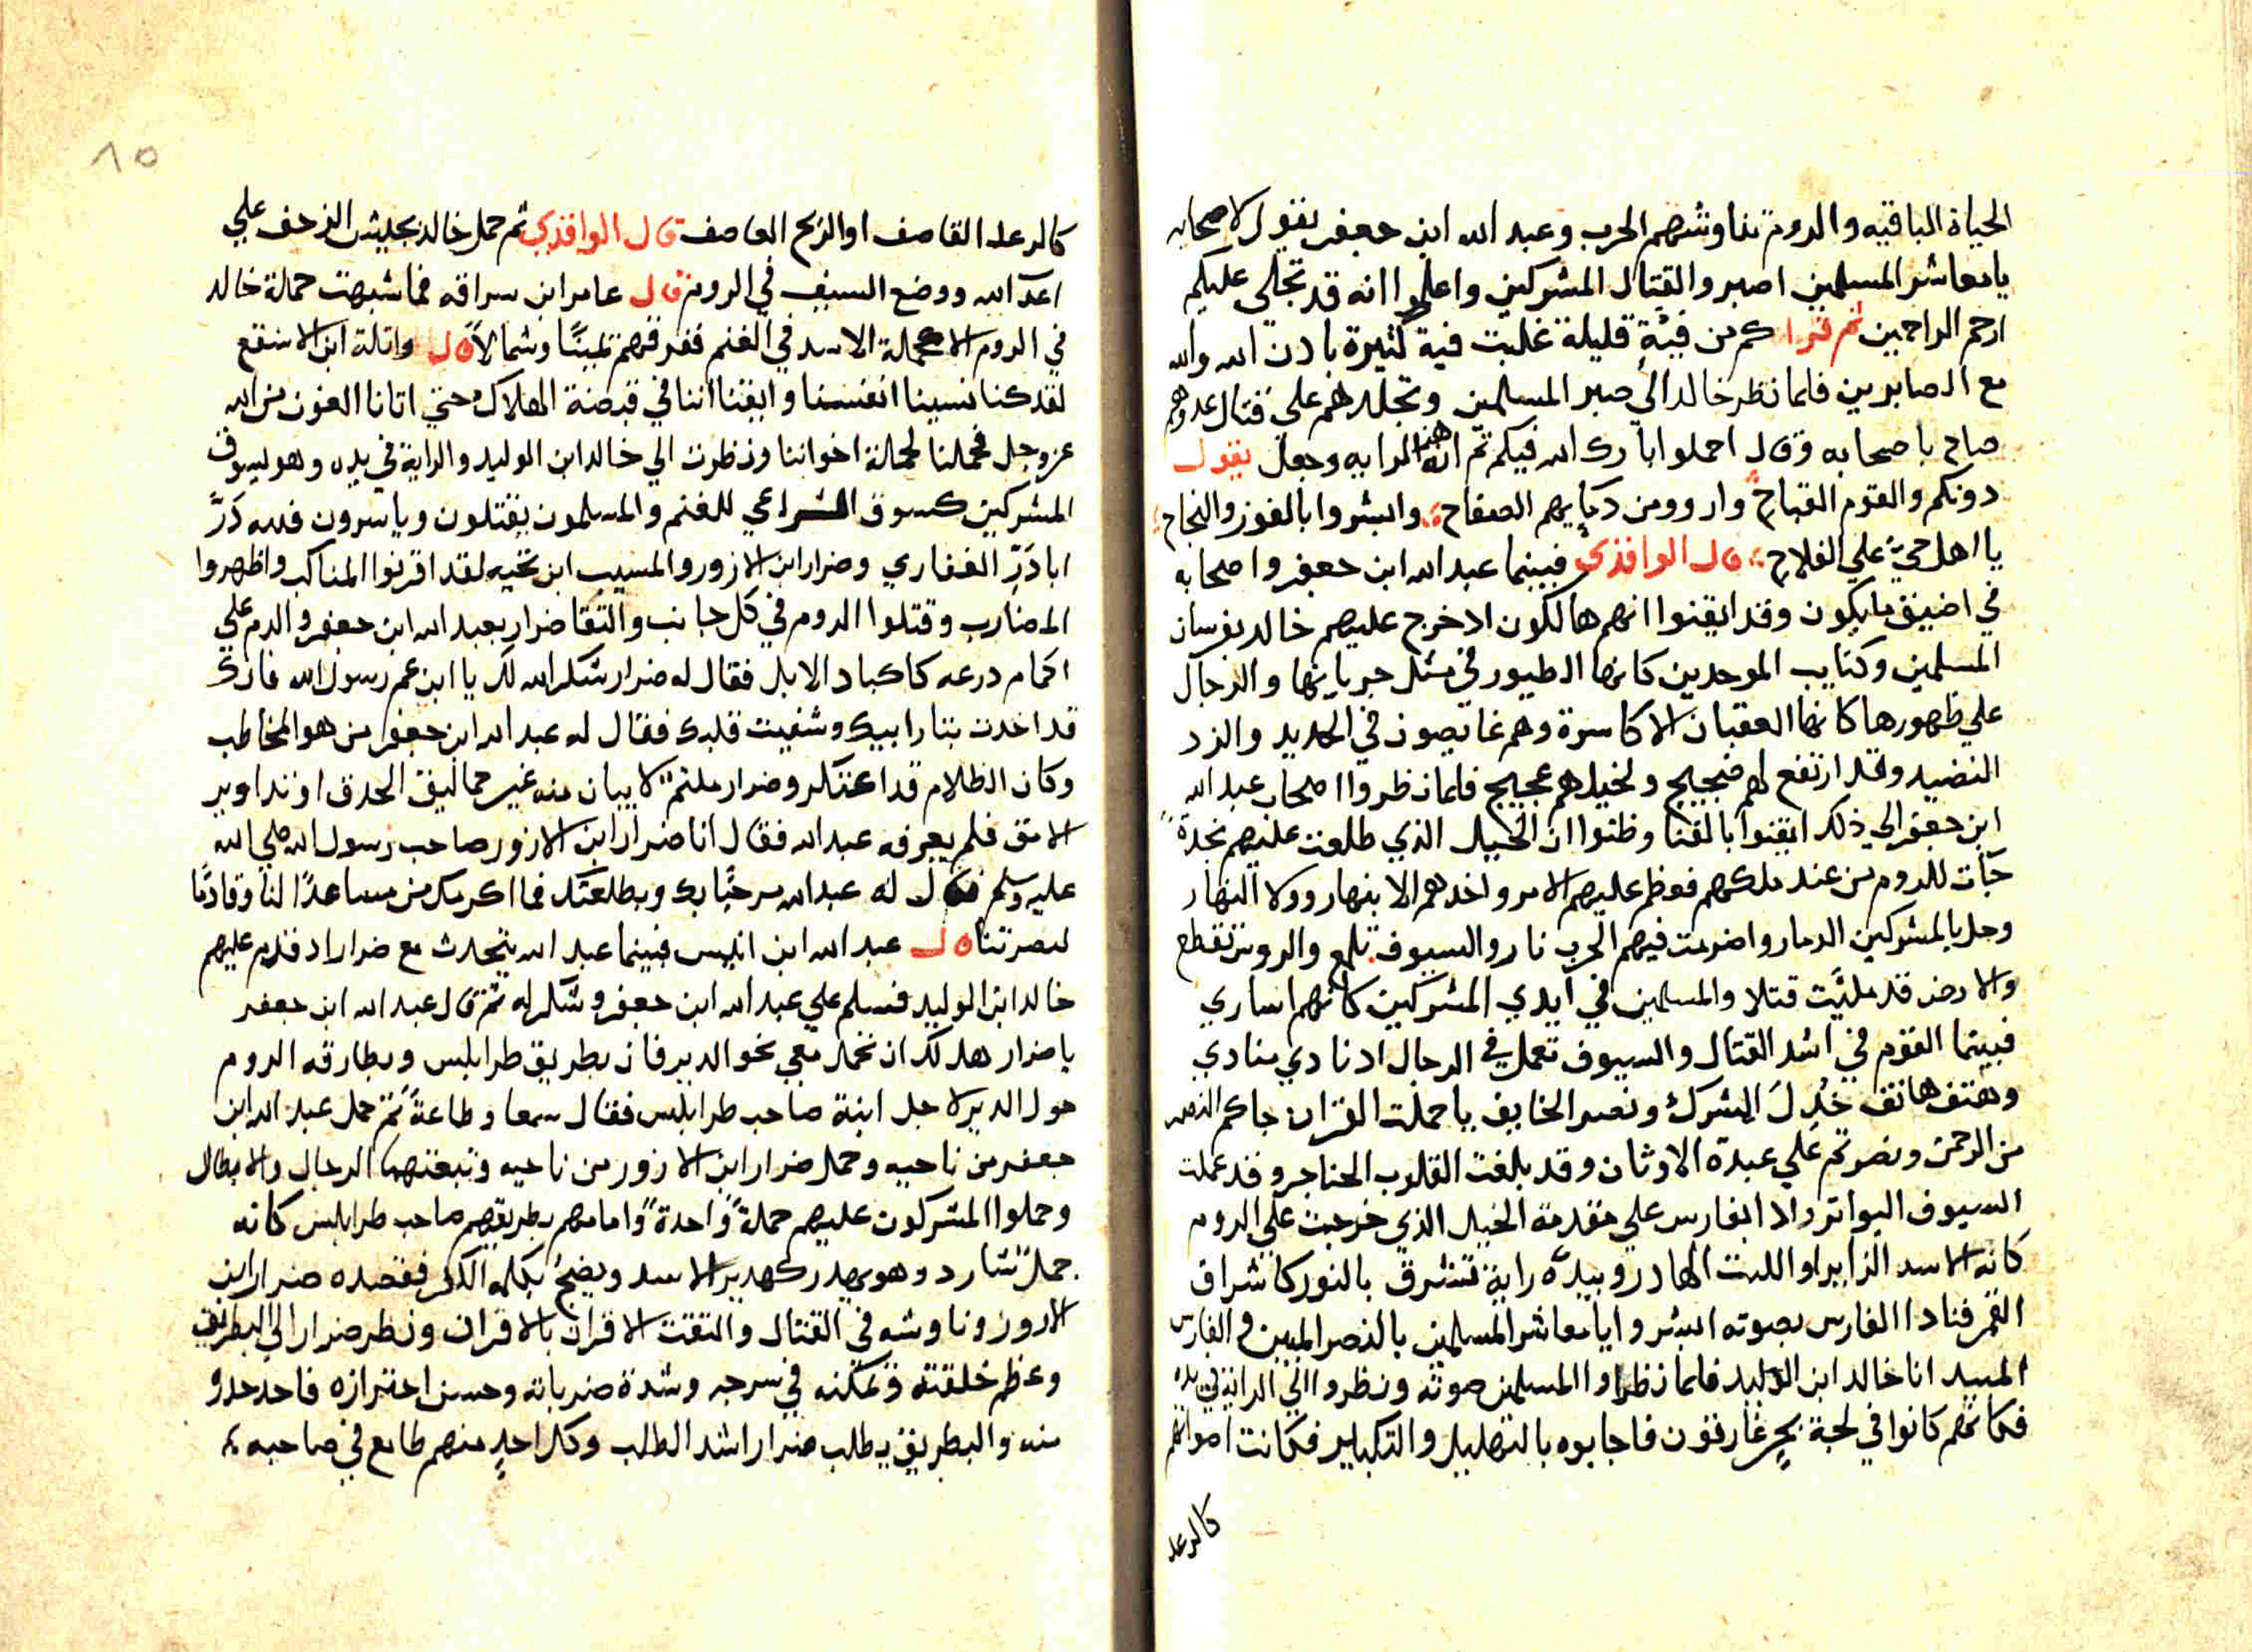 الحياة الباقيه والروم تناوشهم الحرب وعبد الله ابن جعفر يقول لاصحابه
يا معاشر المسلمين اصبروا لقتال المشركين واعلموا انه قد تجلى عليكم
ارحم الراحمين ثم قرا كم من فئة قليلة غلبت فية كثيرة بادن الله والله
مع الصابرين فلما نظر خالد الي صبر المسلمين وتجلدهم علي قتال عدوهم
صاح باصحابه وقال احملوا بارك الله فيكم ثم انه هز الرايه وجعل يقول
دونكم والقوم القباح وارووا من دمايهم الصفاح وابشروا بالفوز والنجاح
يا اهل حي علي الفلاح قال الوافدي فبينما عبد الله ابن جعفر واصحابه
في اضيق ما يكون وقد ايقنوا انهم هالكون اد خرج عليهم خالد بفرسان
المسلمين وكتايب الموحدين كانها الطيور في مثل جريانها والرجال
علي ظهورها كانها العقبان الاكاسرة وهم غايصون في الحديد والزرد
النضيد وقد ارتفع لهم ضجيج ولخيلهم عجيج فلما نظروا اصحاب عبد الله
ابن جعفر الي ذلك ايقنوا بالفنا وظنوا ان الخيل الذي طلعت عليهم نجدة
جات للروم من عند ملكهم فعظم عليهم الامر واخدهم الانبهار وولا النهار
وحل بالمشركين الدمار واضرمت فيهم الحرب نار والسيوف تلمع والروس تقطع
والارض قد مليت قتلا والمسلمين في ايدي المشركين كانهم اساري
فبينما القوم في اشد القتال والسيوف تعمل في الرجال اد نادي منادي
وهتف هاتف خُدِل المشرك ونصر الخايف يا حملت القران جاكم النصر
من الرحمن ونصرتم علي عبدة الاوثان وقد بلغت القلوب الحناجر وقد عملت
السيوف البواتر واد ابفارس علي مقدمة الخيل الذي خرجت علي الروم
كانه الاسد الزاير او الليث الهادر وبيده راية تشرق بالنور كاشراق
القمر فنادا الفارس بصوته ابشروا يا معاشر المسلمين بالنصر المبين والفارس
المبيد انا خالد ابن الوليد فلما نظروا المسلمين صوته ونظروا الي الراية في يده
فكانهم كانوا في لجة بحر غارقون فاجابوه بالتهليل والتكبير فكانت اصواتهم
كالرعد
١٥
كالرعد القاصف او الريح العاصف قال الوافدي ثم حمل خالد بجيش الزحف علي
اعدايه ووضع السيف في الروم قال عامر ابن سراقه فما شبهت حملة خالد
في الروم الا حملة الاسد في الغنم ففرقهم يمينًا وشمالا قال واثلة ابن الاسقع
لقد كنا نسينا انفسنا وايقنا اننا في قبضة الهلاك حتي اتانا العون من الله
عز وجل فحملنا لحملة اخواننا ونظرت الي خالد ابن الوليد والراية في يده وهو يسوق
المشركين كسوق الراعي للغنم والمسلمون يقتلون وياسرون فلله دَرّ
ابا ذَرّ الغفاري وضرار ابن الازور والمسيب ابن نجيه لقد اقرنوا المناكب واظهروا
المضارب وقتلوا الروم في كل جانب والتقا ضرار بعبد الله ابن جعفر والدم علي
اكمام درعه كاكباد الابل فقال له ضرار شكر الله لك يا ابن عم رسول الله فانك
قد اخدت بثار ابيك وشفيت قلبك فقال له عبد الله ابن جعفر من هو المخاطب
وكان الظلام قد اعتكر وضرار ملتم لا يبان منه غير حماليق الحدق او تداوير
الامق فلم يعرفه عبد الله فقال انا ضرار ابن الازور صاحب رسول الله صلي الله
عليه وسلم فقال له عبد الله مرحبًا بك وبطلعتك فما اكرمك من مساعدًا لنا وقادمًا
لنصرتنا قال عبد الله ابن انيس فبينما عبد الله يتحدث مع ضرار اد قدم عليهم
خالد ابن الوليد فسلم علي عبد الله ابن جعفر وشكر له ثم قال عبد الله ابن جعفر
يا ضرار هل لك ان تحمل معي نحو الدير فان بطريق طرابلس وبطارقه الروم
حول الدير لاجل ابنة صاحب طرابلس فقال سمعا وطاعةً ثم حمل عبد الله ابن
جعفر من ناحيه وحمل ضرار ابن الازور من ناحيه وتبعتهما الرجال والابطال
وحملوا المشركون عليهم حملةً واحدةً وامامهم بطريقهم صاحب طرابلس كانه
جمل شارد وهو يهدر كهدير الاسد ويضج بكلمة الكفر فقصده ضرار ابن
الازور وناوشه في القتال والتقت الاقران بالاقران ونظر ضرار الي البطريق
وعظم خلقته وتمكنه في سرجه وشدة ضرباته وحسن احترازه فاحد حدرو
منه والبطريق يطلب ضرار اشد الطلب وكل احدٍ منهم طامع في صاحبه